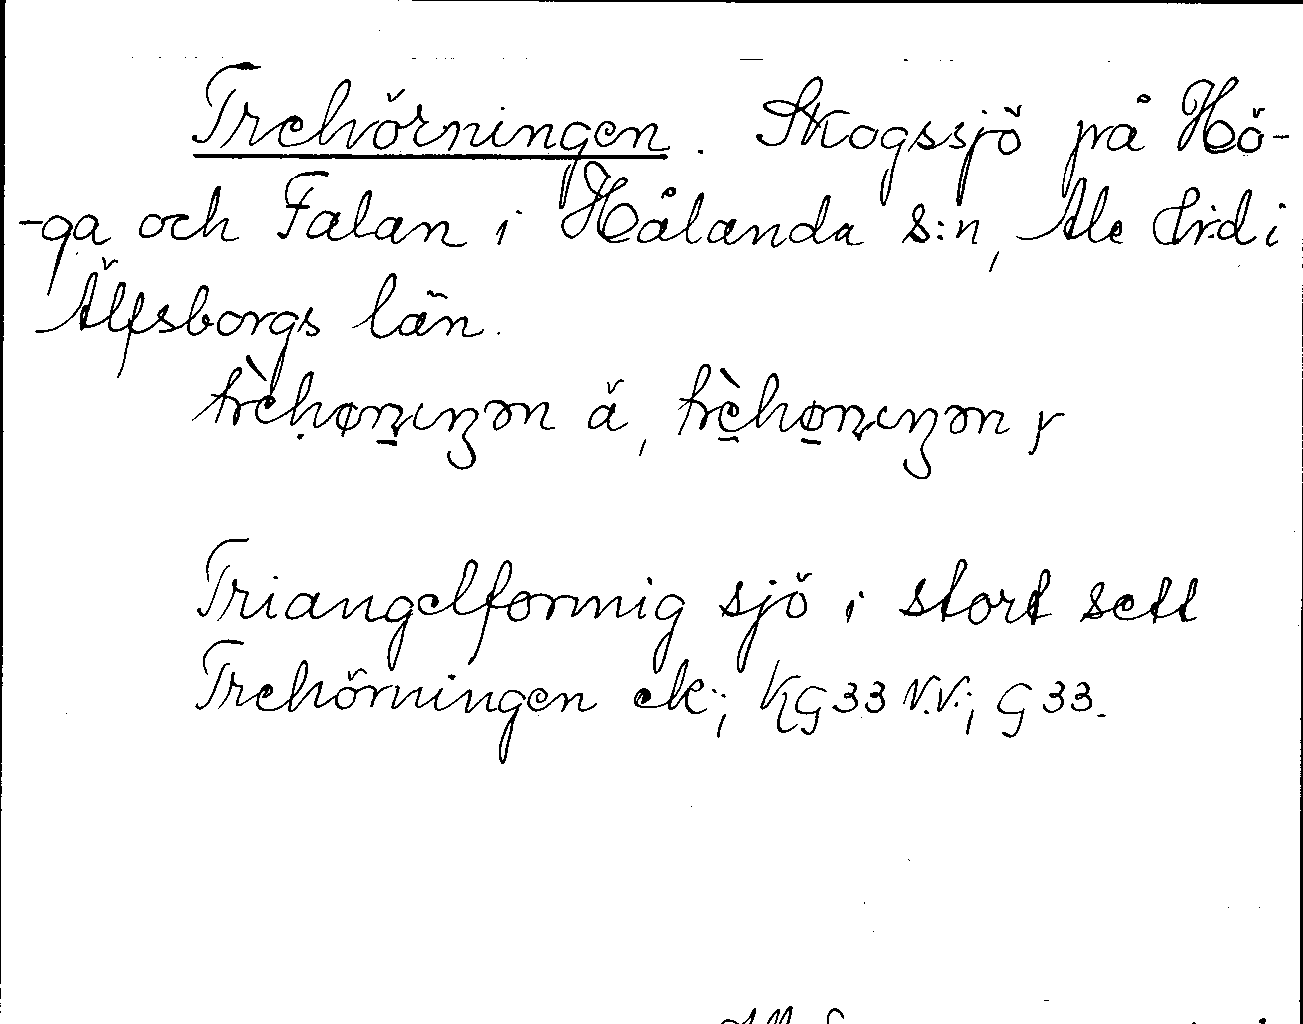 Trehörningen. Skogssjö på Hö-
-ga och Falan i Hålanda s:n, Ale hrd i
Älfsborgs län.
ä, y
Triangelformig sjö i stort sett
Trehörningen ek.; KG33 N.V.; G 33.